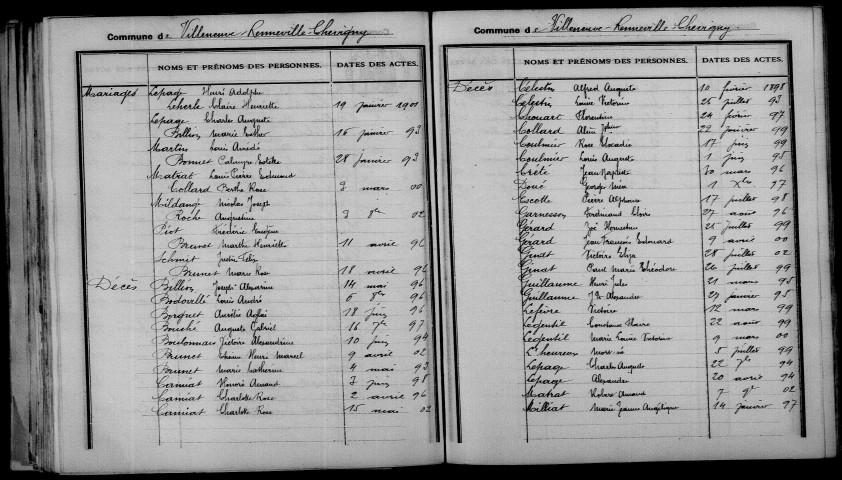 Commune de Villeneuve-Renneville-Chevigny
NOMS ET PRÉNOMS DES PERSONNES. DATES DES ACTES.
Mariages Lepage Henri Adolphe
Leherle Claire Henriette 19 janvier 1901
Lepage Charles Auguste
Billion Marie Esther 16 janvier 93
Martin Louis Amédé
Bonnet 28 janvier 93
Matrat Louis Pierre Edmond
Collard Berthe Rose 3 mars 00
Mildangé Nicolas Joseph
Roche Augustine 3 8bre 02
Piot Frédéric Eugène
Brunet Marthe Henriette 11 avril 96
Schmit Justin Félix
Brunet Marie Rose 18 avril 96
Décès Billion Joseph Alexandrine 14 mai 96
Bodovillé Louis André 6 8bre 96
Borgnet Aurélie Aglaé 18 juin 96
Bouché Auguste Gabriel 16 7bre 97
Boulonnais Victoire Alexandrine 10 juin 94
Brunet Henri Marcel 9 avril 02
Brunet Marie Catherine 4 mai 93
Camiat Honoré Armand 7 juin 98
Camiat Charlotte Rose 2 avril 96
Camiat Charlotte Rose 15 mai 02
Commune de Villeneuve-Renneville-Chevigny
NOMS ET PRÉNOMS DES PERSONNES. DATES DES ACTES.
Décès Célestin Alfred Auguste 10 février 1898
Célestin Louis Victorien 25 juillet 93
Chouart Florentin 24 février 97
Collard 22 janvier 99
Coulmier Rose Léocadie 17 juin 99
Coulmier Louis Auguste 1 juin 95
Crété Jean Baptiste 30 mars 96
Doué George 1 Xbre 97
Escotte Pierre Alphonse 17 juillet 98
Garnesson Ferdinand Eloi 27 août 96
Gérard 21 juillet 99
Gérard Jean François Edouard 9 avril 00
Ginat Victoire Eliza 28 juillet 02
Ginat Paul Marie Théodore 26 juillet 99
Guillaume Henri Jules 21 mars 95
Guillaume Alexandre 29 janvier 95
Lefèvre Victoire 12 mars 99
Legentil Constance 22 août 99
Legentil Marie Louise Victorine 9 mars 00
L'heureux 5 juillet 99
Lepage Charles Auguste 22 7bre 94
Lepage Alexandre 20 avril 94
Matrat Armand 7 9bre 02
Milliat Marie Jeanne Angélique 14 janvier 97